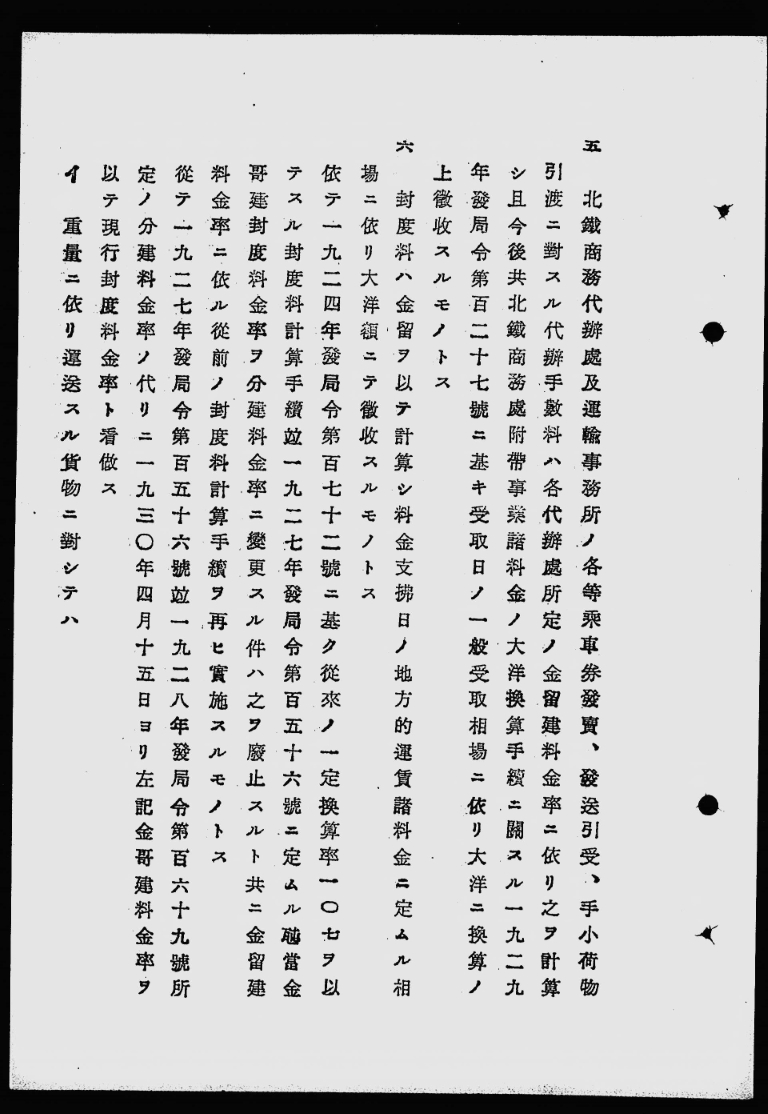 五　北鐵商務代辦處及運輸事務所ノ各等乘車券發賣、發送引受、手小荷物
引渡ニ對スル代辦手數料ハ各代辦處所定ノ金留建料金率ニ依リ之ヲ計算
シ且今後共北鐵商務處附帶事業諸料金ノ大洋換算手續ニ關スル一九二九
年發局令第百二十七號ニ基キ受取日ノ一般受取相場ニ依リ大洋ニ換算ノ
上徵收スルモノトス
六　封度料ハ金留ヲ以テ計算シ料金支拂日ノ地方的運賃諸料金ニ定ムル相
場ニ依リ大洋額ニテ徵收スルモノトス
依テ一九二四年發局令第百七十二號ニ基ク從來ノ一定換算率一〇七ヲ以
テスル封度料計算手續竝一九二七年發局令第百五十六號ニ定ムル聽當金
哥建封度料金率ヲ分建料金率ニ變更スル件ハ之ヲ廢止スルト共ニ金留建
料金率ニ依ル從前ノ封度料計算手續ヲ再ヒ實施スルモノトス
從テ一九二七年發局令第百五十六號竝一九二八年發局令第百六十九號所
定ノ分建料金率ノ代リニ一九三〇年四月十五日ヨリ左記金哥建料金率ヲ
以テ現行封度料金率ト看做ス
イ　重量ニ依リ運送スル貨物ニ對シテハ